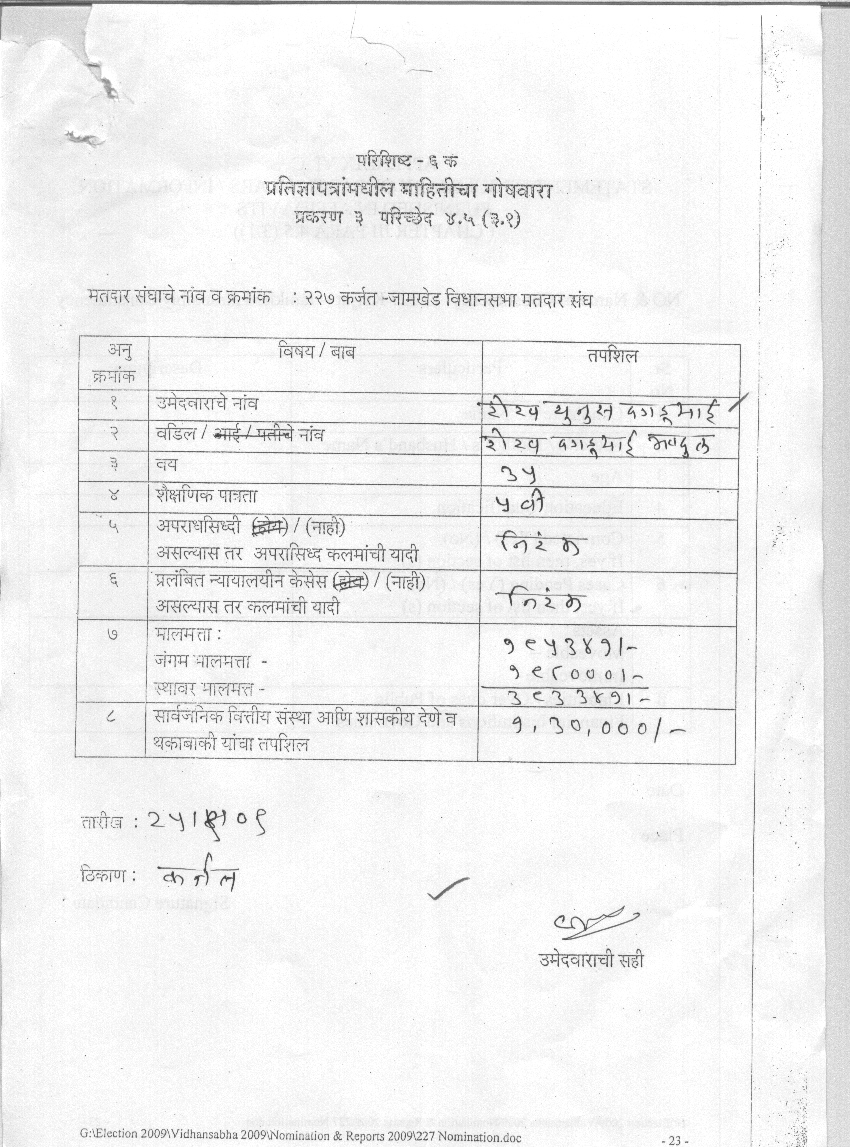 परिशिष्ट - ६ क
प्रतिज्ञापत्रांमधील माहितीचा गोषवारा
प्रकरण ३ परिच्छेद ४.५ (३.१)
मतदार संघाचे नांव व क्रमांक : २२७ कर्जत -जामखेड विधानसभा मतदार संघ
अनु क्रमांक विषय / बाब तपशिल
१ उमेदवाराचे नांव शेख युनुस दगडूभाई
२ वडिल / आई / पतीचे नांव शेख दगडूभाई अबदुल
३ वय ३५
४ शैक्षणिक पात्रता ५ वी
५ अपराधसिध्दी (होय) / (नाही) निरंक
असल्यास तर अपरासिध्द कलमांची यादी
६ प्रलंबित न्यायालयीन केसेस (होय) / (नाही) निरंक
असल्यास तर कलमांची यादी
७ मालमत्ता :
जंगम मालमत्ता - १९५३४१/-
स्थावर मालमत्त - १९८०००/-
३९३३४१/-
८ सार्वजनिक वित्तीय संस्था आणि शासकीय देणे व १,३०,०००/-
थकाबाकी यांचा तपशिल
तारीख : २५/९/०९
ठिकाण : कर्जत
उमेदवाराची सही
G:\Election 2009\Vidhansabha 2009\Nomination & Reports 2009\227 Nomination.doc
- 23 -